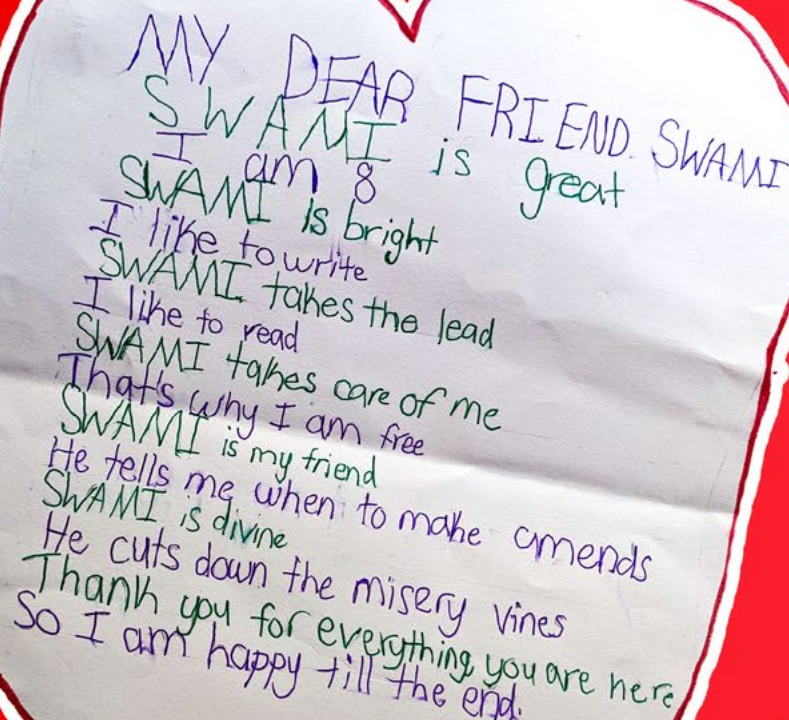 MY DEAR FRIEND SWAMI
SWAMI is great
I am 8
SWAMI is bright
I like to write
SWAMI takes the lead
I like to read
SWAMI takes care of me
That's why I am free
SWAMI is my friend
He tells me when to make amends
SWAMI is divine
He cuts down the misery vines
Thank you for everything, you are here
So I am happy till the end.